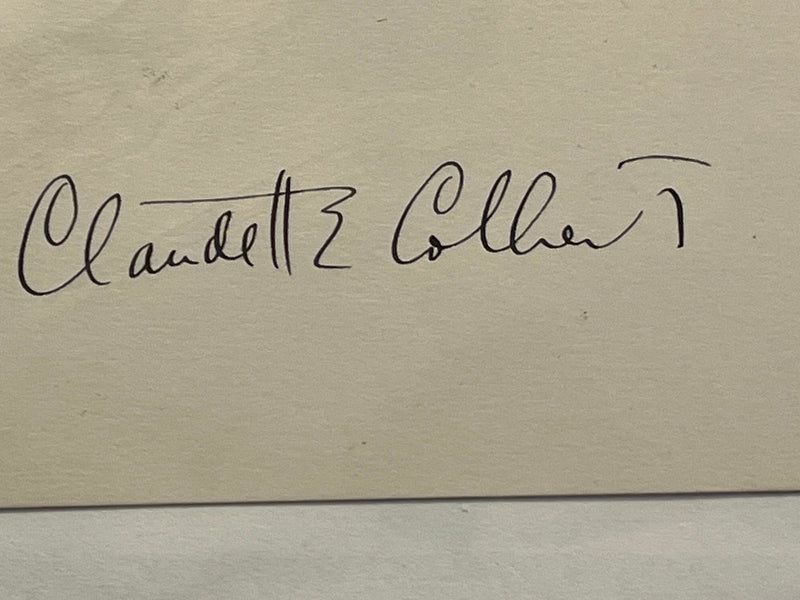 Claudette Colbert